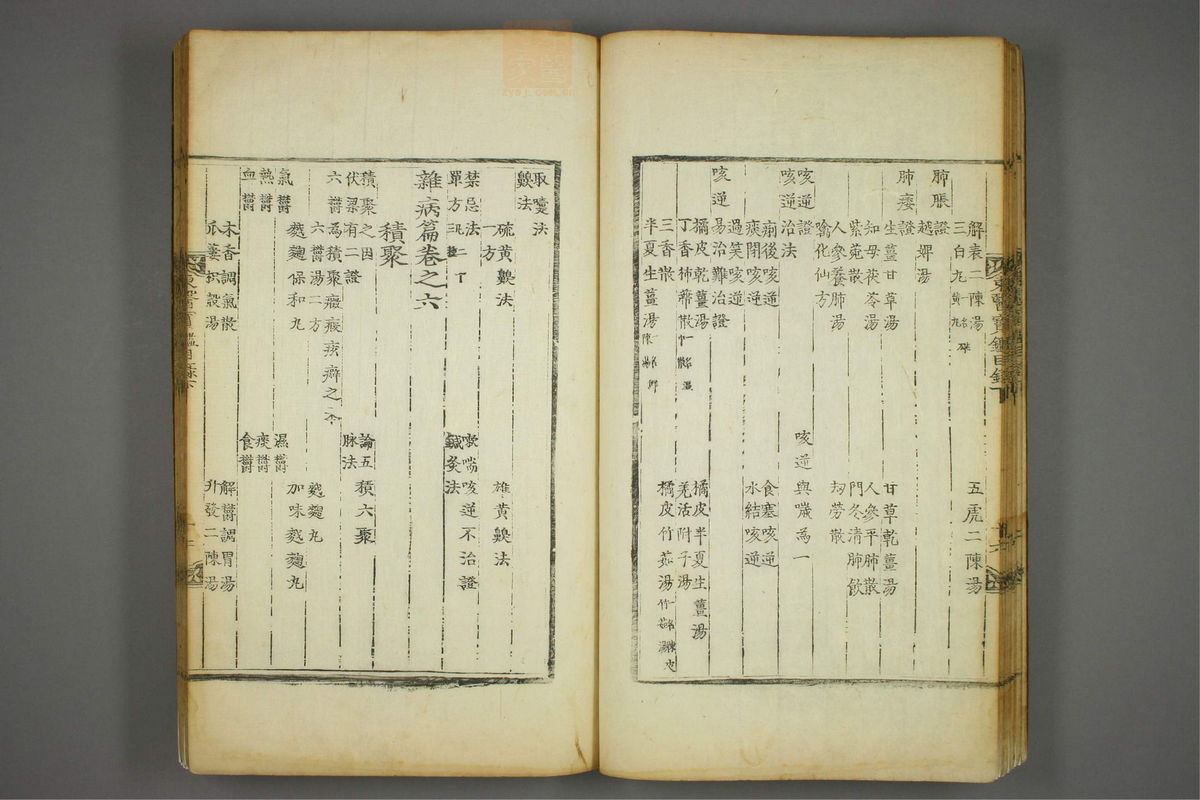 解表二陳湯
五虎二陳湯
三白丸
肺脹證
越婢湯
肺痿證
生薑甘草湯
甘草乾薑湯
知母茯苓湯
人參平肺散
紫菀散
門冬清肺飲
人參養肺湯
劫勞散
噙化仙方
咳逆證
咳逆與噦爲一
咳逆治法
痢後咳逆
食塞咳逆
痰閉咳逆
水結咳逆
過笑咳逆
咳逆易治難治證
橘皮乾薑湯
橘皮半夏生薑湯
丁香柿蔕散
羌活附子湯
三香散
橘皮竹茹湯
半夏生薑湯
東醫寶鑑目錄下
取嚏法
熏法
硫黃熏法
雄黃熏法
一方
禁忌法
嗽喘咳逆不治證
單方
鍼灸法
雜病篇卷之六
積聚
積聚之因
論五積六聚
伏梁有二證
脉法
六鬱爲積聚癥瘕痃癖之本
六鬱湯二方
越麴丸
越麴保和丸
加味越麴丸
氣鬱
濕鬱
熱鬱
痰鬱
血鬱
食鬱
木香調氣散
解鬱調胃湯
升發二陳湯
東醫寶鑑目錄下